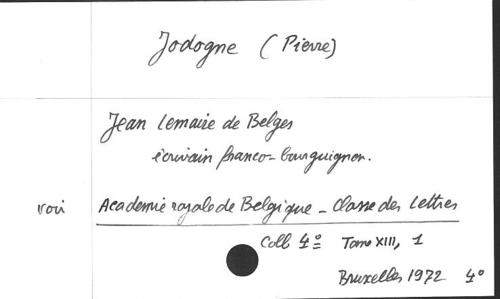 Jodogne (Pierre)
Jean Lemaire de Belges
écrivain franco-bourguignon.
voir Académie royale de Belgique - Classe des Lettres
Coll 4º Tome XIII, 1
Bruxelles 1972 4º